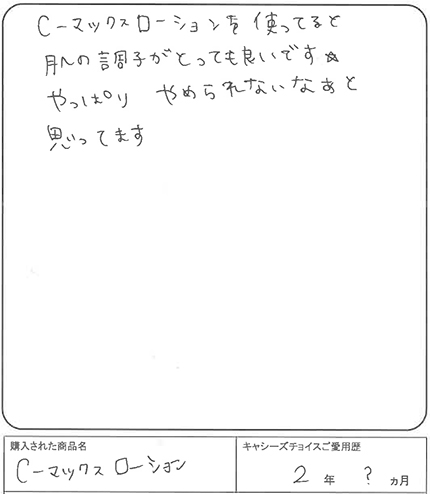 C-マックスローションを使ってると
肌の調子がとっても良いです☆
やっぱり やめられないなぁと
思ってます
購入された商品名
C-マックスローション
キャシーズチョイスご愛用歴
2年 ?ヵ月